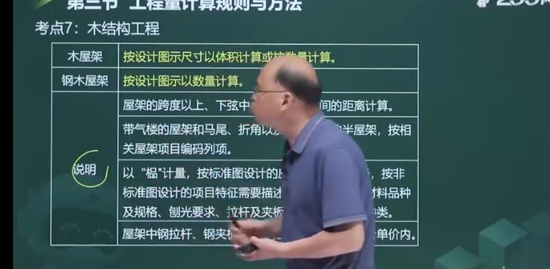 第三节 工程量计算规则与方法
考点7：木结构工程
木屋架 按设计图示尺寸以体积计算或按数量计算。
钢木屋架 按设计图示以数量计算。
说明
屋架的跨度以上、下弦中 间的距离计算。
带气楼的屋架和马尾、折角以 半屋架，按相
关屋架项目编码列项。
以“榀”计量，按标准图设计的 ，按非
标准图设计的项目特征需要描述 材料品种
及规格、刨光要求、拉杆及夹板 类。
屋架中钢拉杆、钢夹板 单价内。